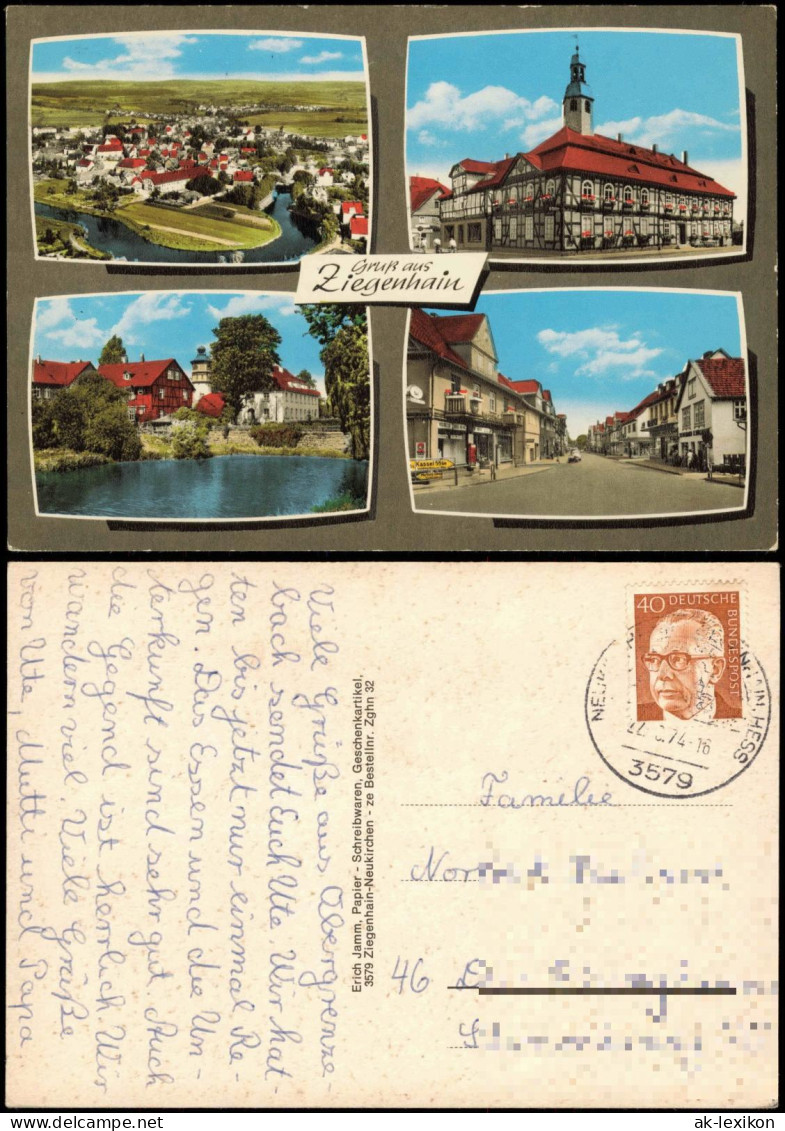 Gruß aus
Ziegenhain
Kassel
Viele Grüße aus Obergrenze-
bach sendet Euch Ute. Wir hat-
ten bis jetzt nur einmal Re-
gen. Das Essen und die Un-
terkunft sind sehr gut. Auch
die Gegend ist herrlich. Wir
wandern viel. Viele Grüße
vom Ute, Mutti und Papa
Erich Jamm, Papier - Schreibwaren, Geschenkartikel,
3579 Ziegenhain-Neukirchen - ze Bestellnr. Zghn 32
40 DEUTSCHE
BUNDESPOST
HESS
74-16
3579
Familie
46
ak-lexikon